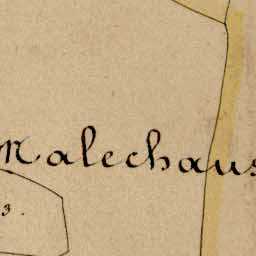 Malechaus
3.